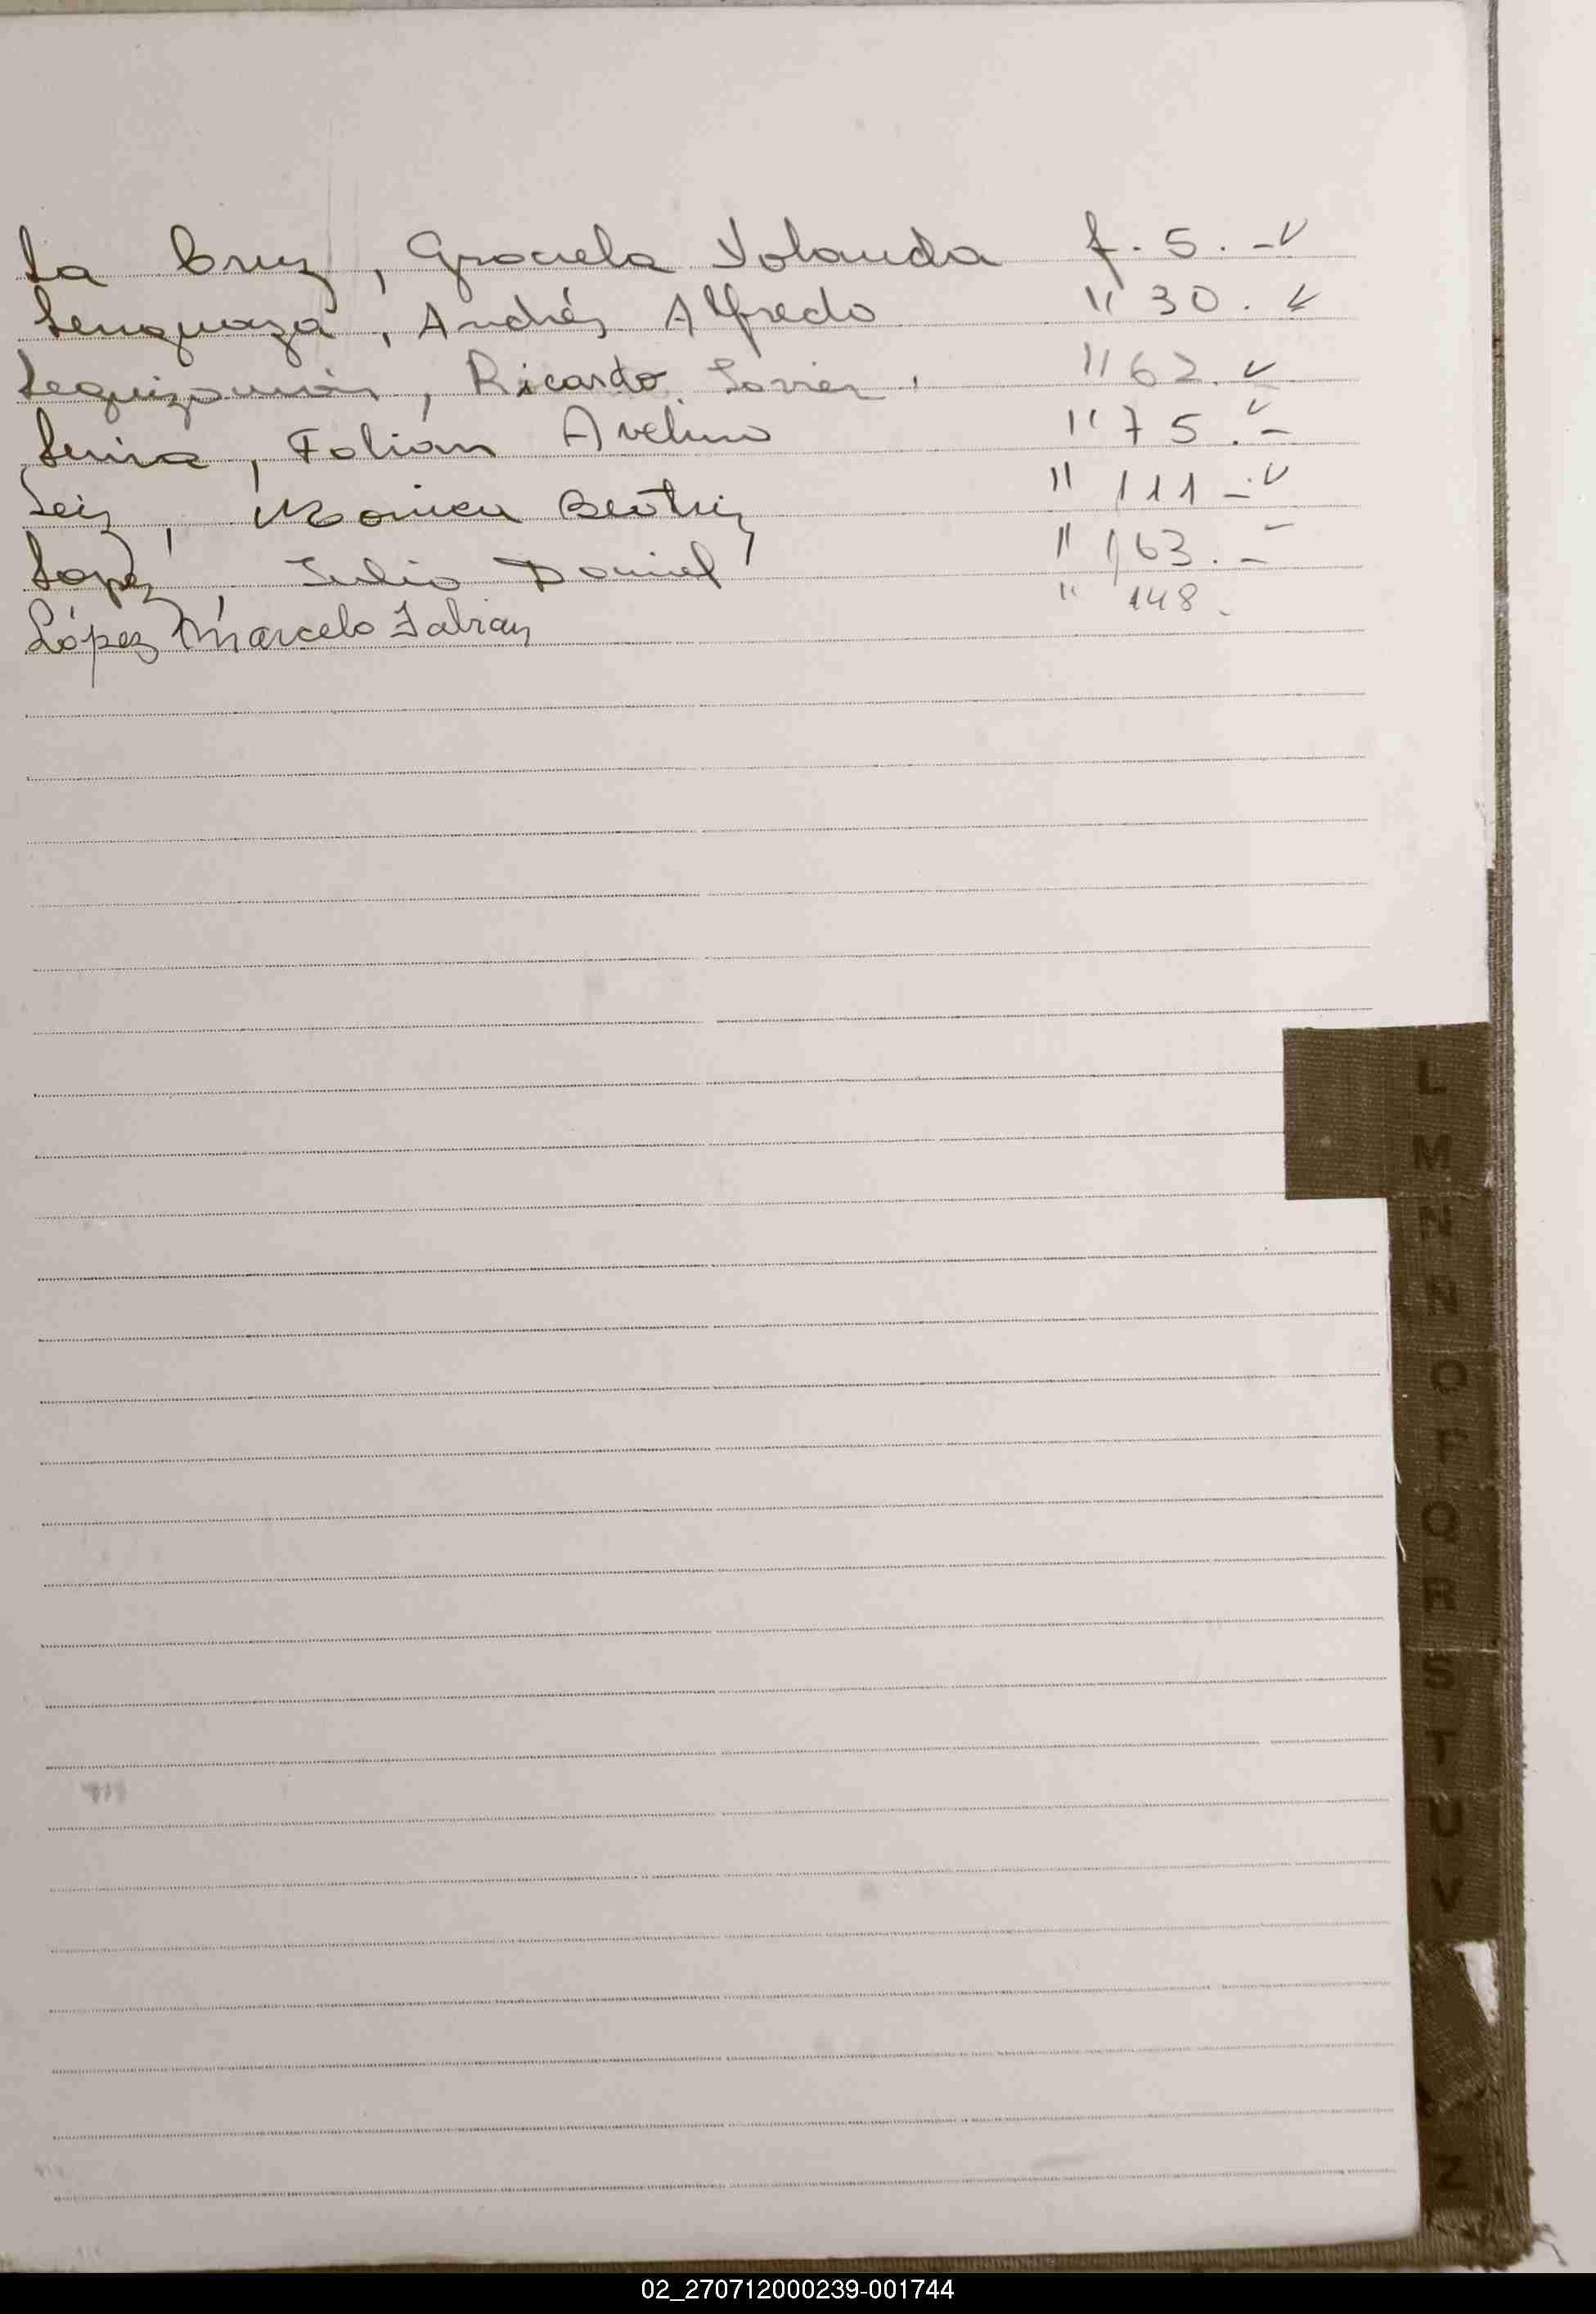 La Cruz, Graciela Yolanda f. 5. -
Lenguaza, Andrés Alfredo " 30.
Leguizamón, Ricardo Javier. " 62.
Leiva, Fabián Avelino " 75. -
Leiz, Monica Beatriz " 111 -.
Lopez, Julio Daniel " 163. -
López Marcelo Fabian " 148.
L
M
N
N
O
P
Q
R
S
T
U
V
Z
02_270712000239-001744